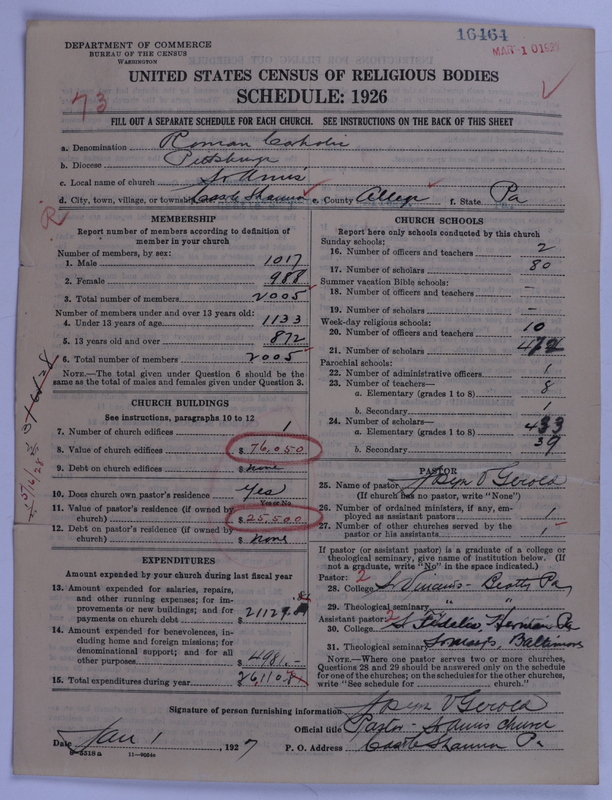 16464
MAR 10 192
DEPARTMENT OF COMMERCE
BUREAU OF THE CENSUS
WASHINGTON
UNITED STATES CENSUS OF RELIGIOUS BODIES
SCHEDULE: 1926
73
FILL OUT A SEPARATE SCHEDULE FOR EACH CHURCH. SEE INSTRUCTIONS ON THE BACK OF THIS SHEET
a. Denomination Roman Catholic
b. Diocese Pittsburg
c. Local name of church St Annes
d. City, town, village, or township Castle Shannon e. County Allege f. State Pa
R
MEMBERSHIP
Report number of members according to definition of
member in your church
Number of members, by sex:
1. Male 1017
2. Female 988
3. Total number of members 2005
Number of members under and over 13 years old:
4. Under 13 years of age 1133
5. 13 years old and over 872
6. Total number of members 2005
NOTE.—The total given under Question 6 should be
the same as the total of males and females given under Question 3.
CHURCH BUILDINGS
See instructions, paragraphs 10 to 12
7. Number of church edifices 1
8. Value of church edifices $ 76,050
9. Debt on church edifices $ none
10. Does church own pastor's residence yes
Yes or No
11. Value of pastor's residence (if owned by
church) $ 25,500
12. Debt on pastor's residence (if owned by
church) $ none
EXPENDITURES
Amount expended by your church during last fiscal year
13. Amount expended for salaries, repairs,
and other running expenses; for im-
provements or new buildings; and for
payments on church debt $ 21129.
14. Amount expended for benevolences, in-
cluding home and foreign missions; for
denominational support; and for all
other purposes $ 4981.—
15. Total expenditures during year $ 26110.
CHURCH SCHOOLS
Report here only schools conducted by this church
Sunday schools:
16. Number of officers and teachers 2
17. Number of scholars 80
Summer vacation Bible schools:
18. Number of officers and teachers –
19. Number of scholars –
Week-day religious schools:
20. Number of officers and teachers 10
21. Number of scholars 472
Parochial schools:
22. Number of administrative officers 1
23. Number of teachers—
a. Elementary (grades 1 to 8) 8
b. Secondary 1
24. Number of scholars—
a. Elementary (grades 1 to 8) 433
b. Secondary 39
PASTOR
25. Name of pastor Joseph V Gerold
(If church has no pastor, write "None")
26. Number of ordained ministers, if any, em-
ployed as assistant pastors 1
27. Number of other churches served by the
pastor or his assistants 1
If pastor (or assistant pastor) is a graduate of a college or
theological seminary, give name of institution below. (If
not a graduate, write "No" in the space indicated.)
Pastor: 2
28. College St Vincents - Beatty Pa
29. Theological seminary " "
Assistant pastor: 2
30. College St Fidelis, Herman Pa
31. Theological seminary St Marys, Baltimore
NOTE.—Where one pastor serves two or more churches,
Questions 28 and 29 should be answered only on the schedule
for one of the churches; on the schedules for the other churches,
write "See schedule for church."
Signature of person furnishing information Joseph V Gerold
Official title Pastor - St Annes Church
Date Jan 1 1927 P. O. Address Castle Shannon Pa
8-5518a 11-9554a